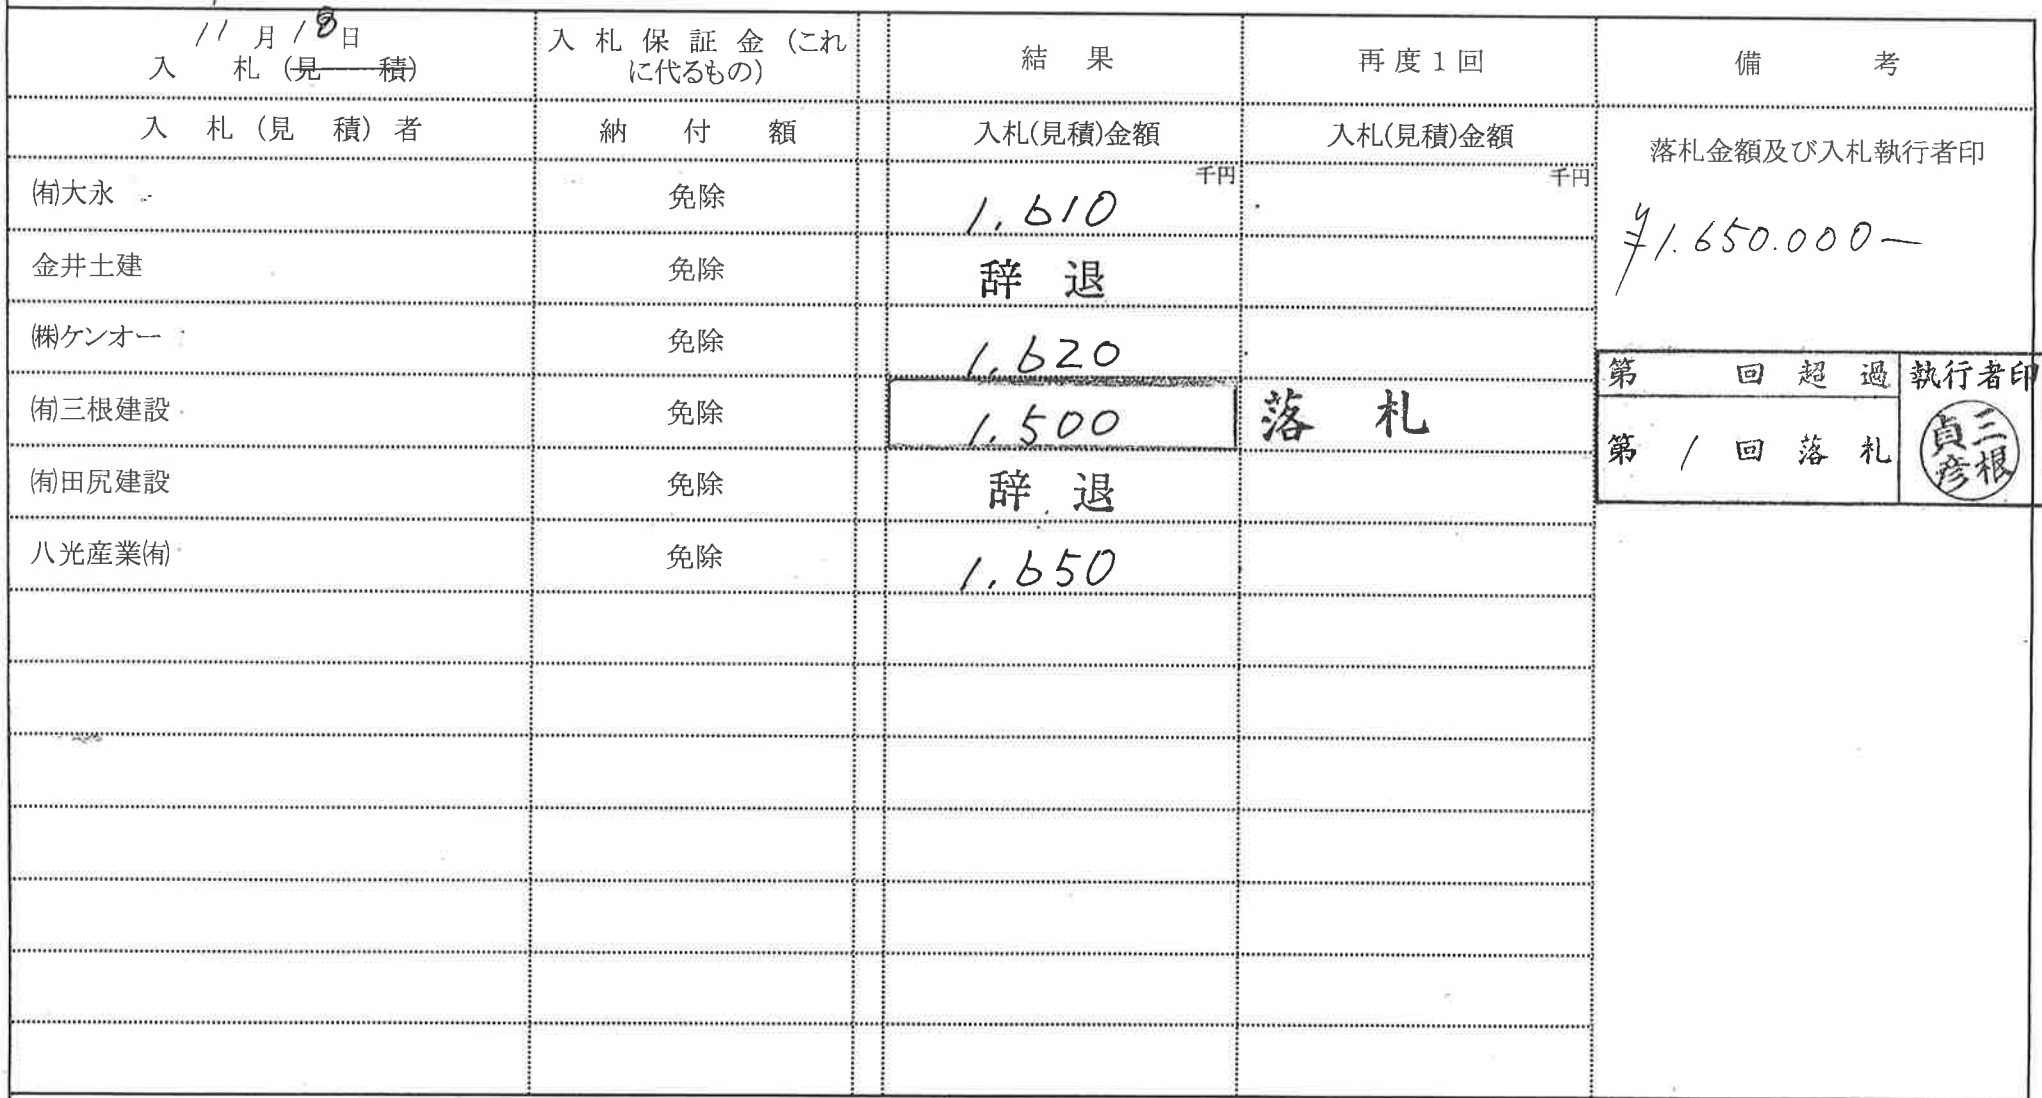 11月18日
入札(見積)
入札保証金(これ
に代るもの)
結果
再度1回
備考
入札(見積)者
納付額
入札(見積)金額
入札(見積)金額
落札金額及び入札執行者印
千円
千円
㈲大永
免除
1,610
¥1.650.000-
金井土建
免除
辞退
㈱ケンオー
免除
1,620
第 回超過
執行者印
㈲三根建設
免除
1,500
落札
第1回落札
三根
貞彦
㈲田尻建設
免除
辞退
八光産業㈲
免除
1,650